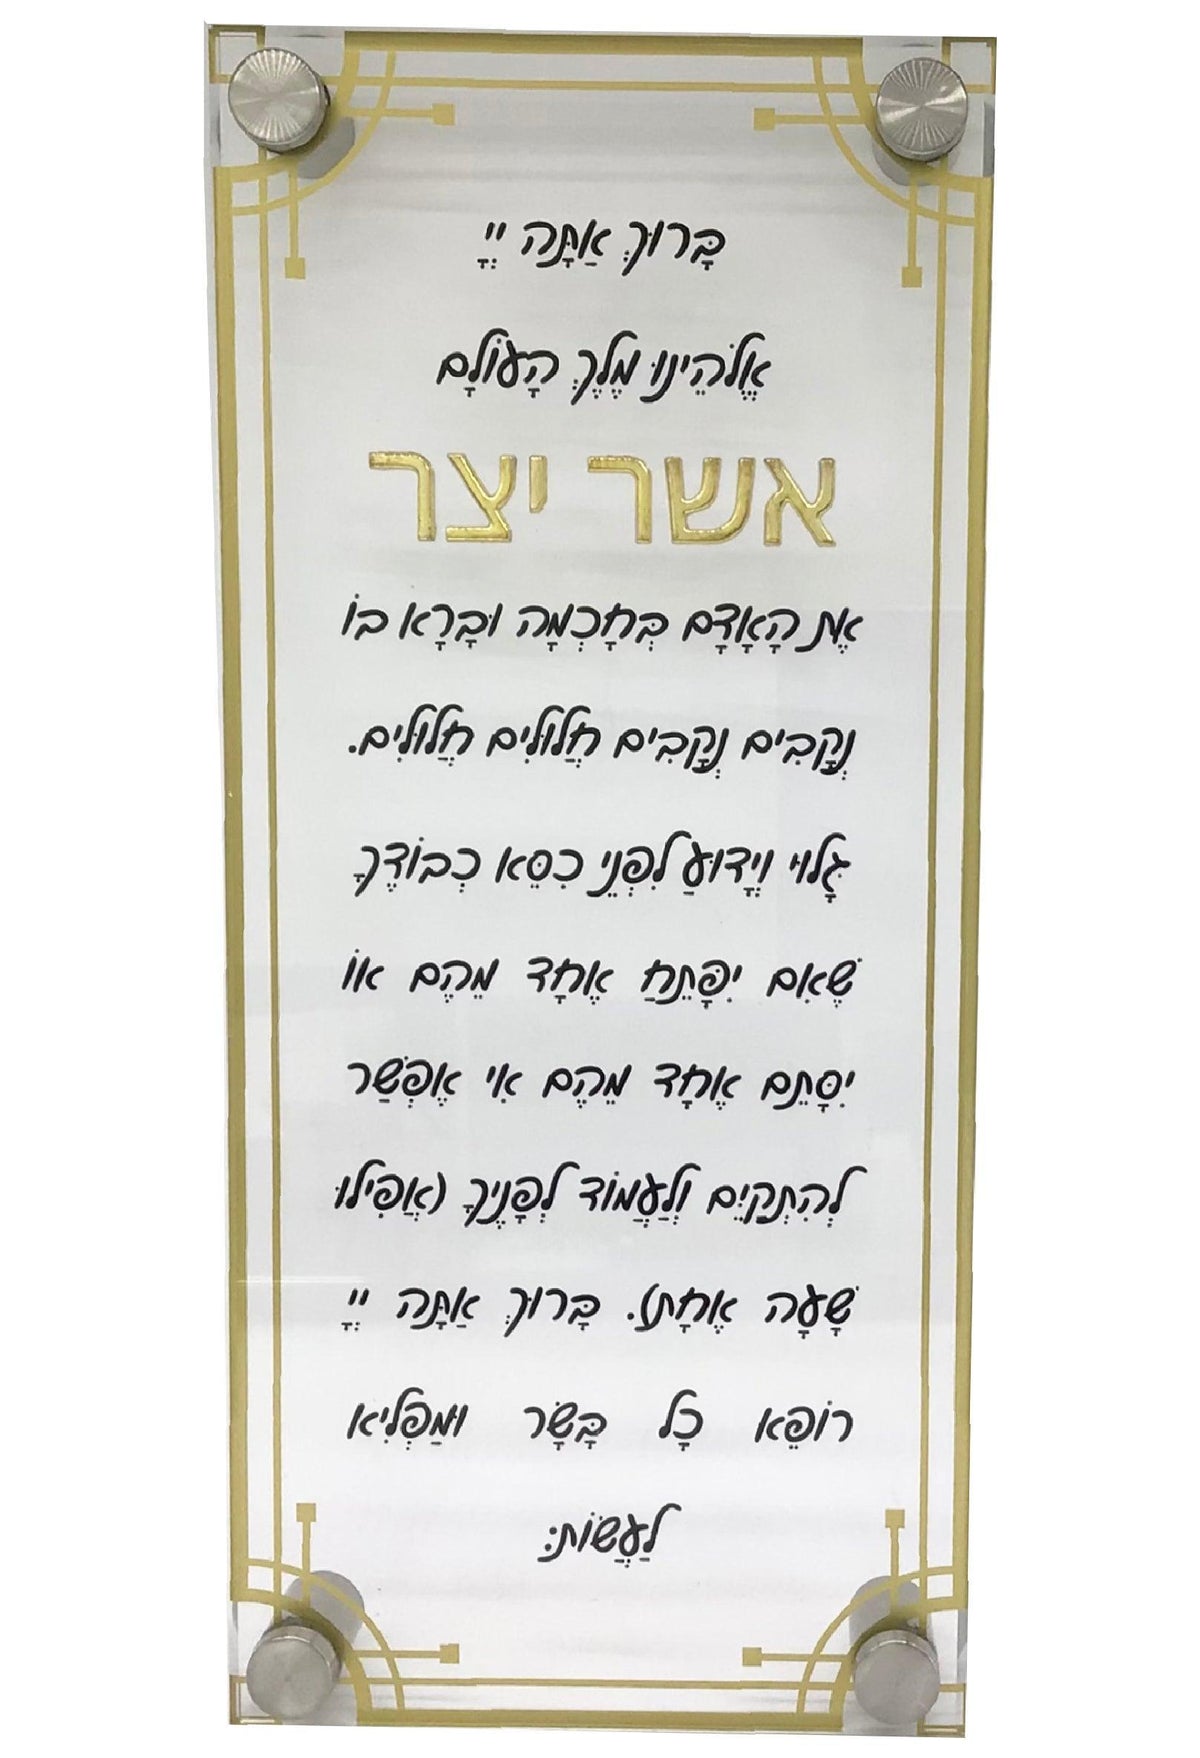 בָּרוּךְ אַתָּה יְיָ
אֱלֹהֵינוּ מֶלֶךְ הָעוֹלָם
אשר יצר
אֶת הָאָדָם בְּחָכְמָה וּבָרָא בוֹ
נְקָבִים נְקָבִים חֲלוּלִים חֲלוּלִים.
גָּלוּי וְיָדוּעַ לִפְנֵי כִסֵּא כְבוֹדֶךָ
שֶׁאִם יִפָּתֵחַ אֶחָד מֵהֶם אוֹ
יִסָּתֵם אֶחָד מֵהֶם אִי אֶפְשַׁר
לְהִתְקַיֵּם וְלַעֲמוֹד לְפָנֶיךָ (אֲפִילוּ
שָׁעָה אֶחָת). בָּרוּךְ אַתָּה יְיָ
רוֹפֵא כָל בָּשָׂר וּמַפְלִיא
לַעֲשׂוֹת: